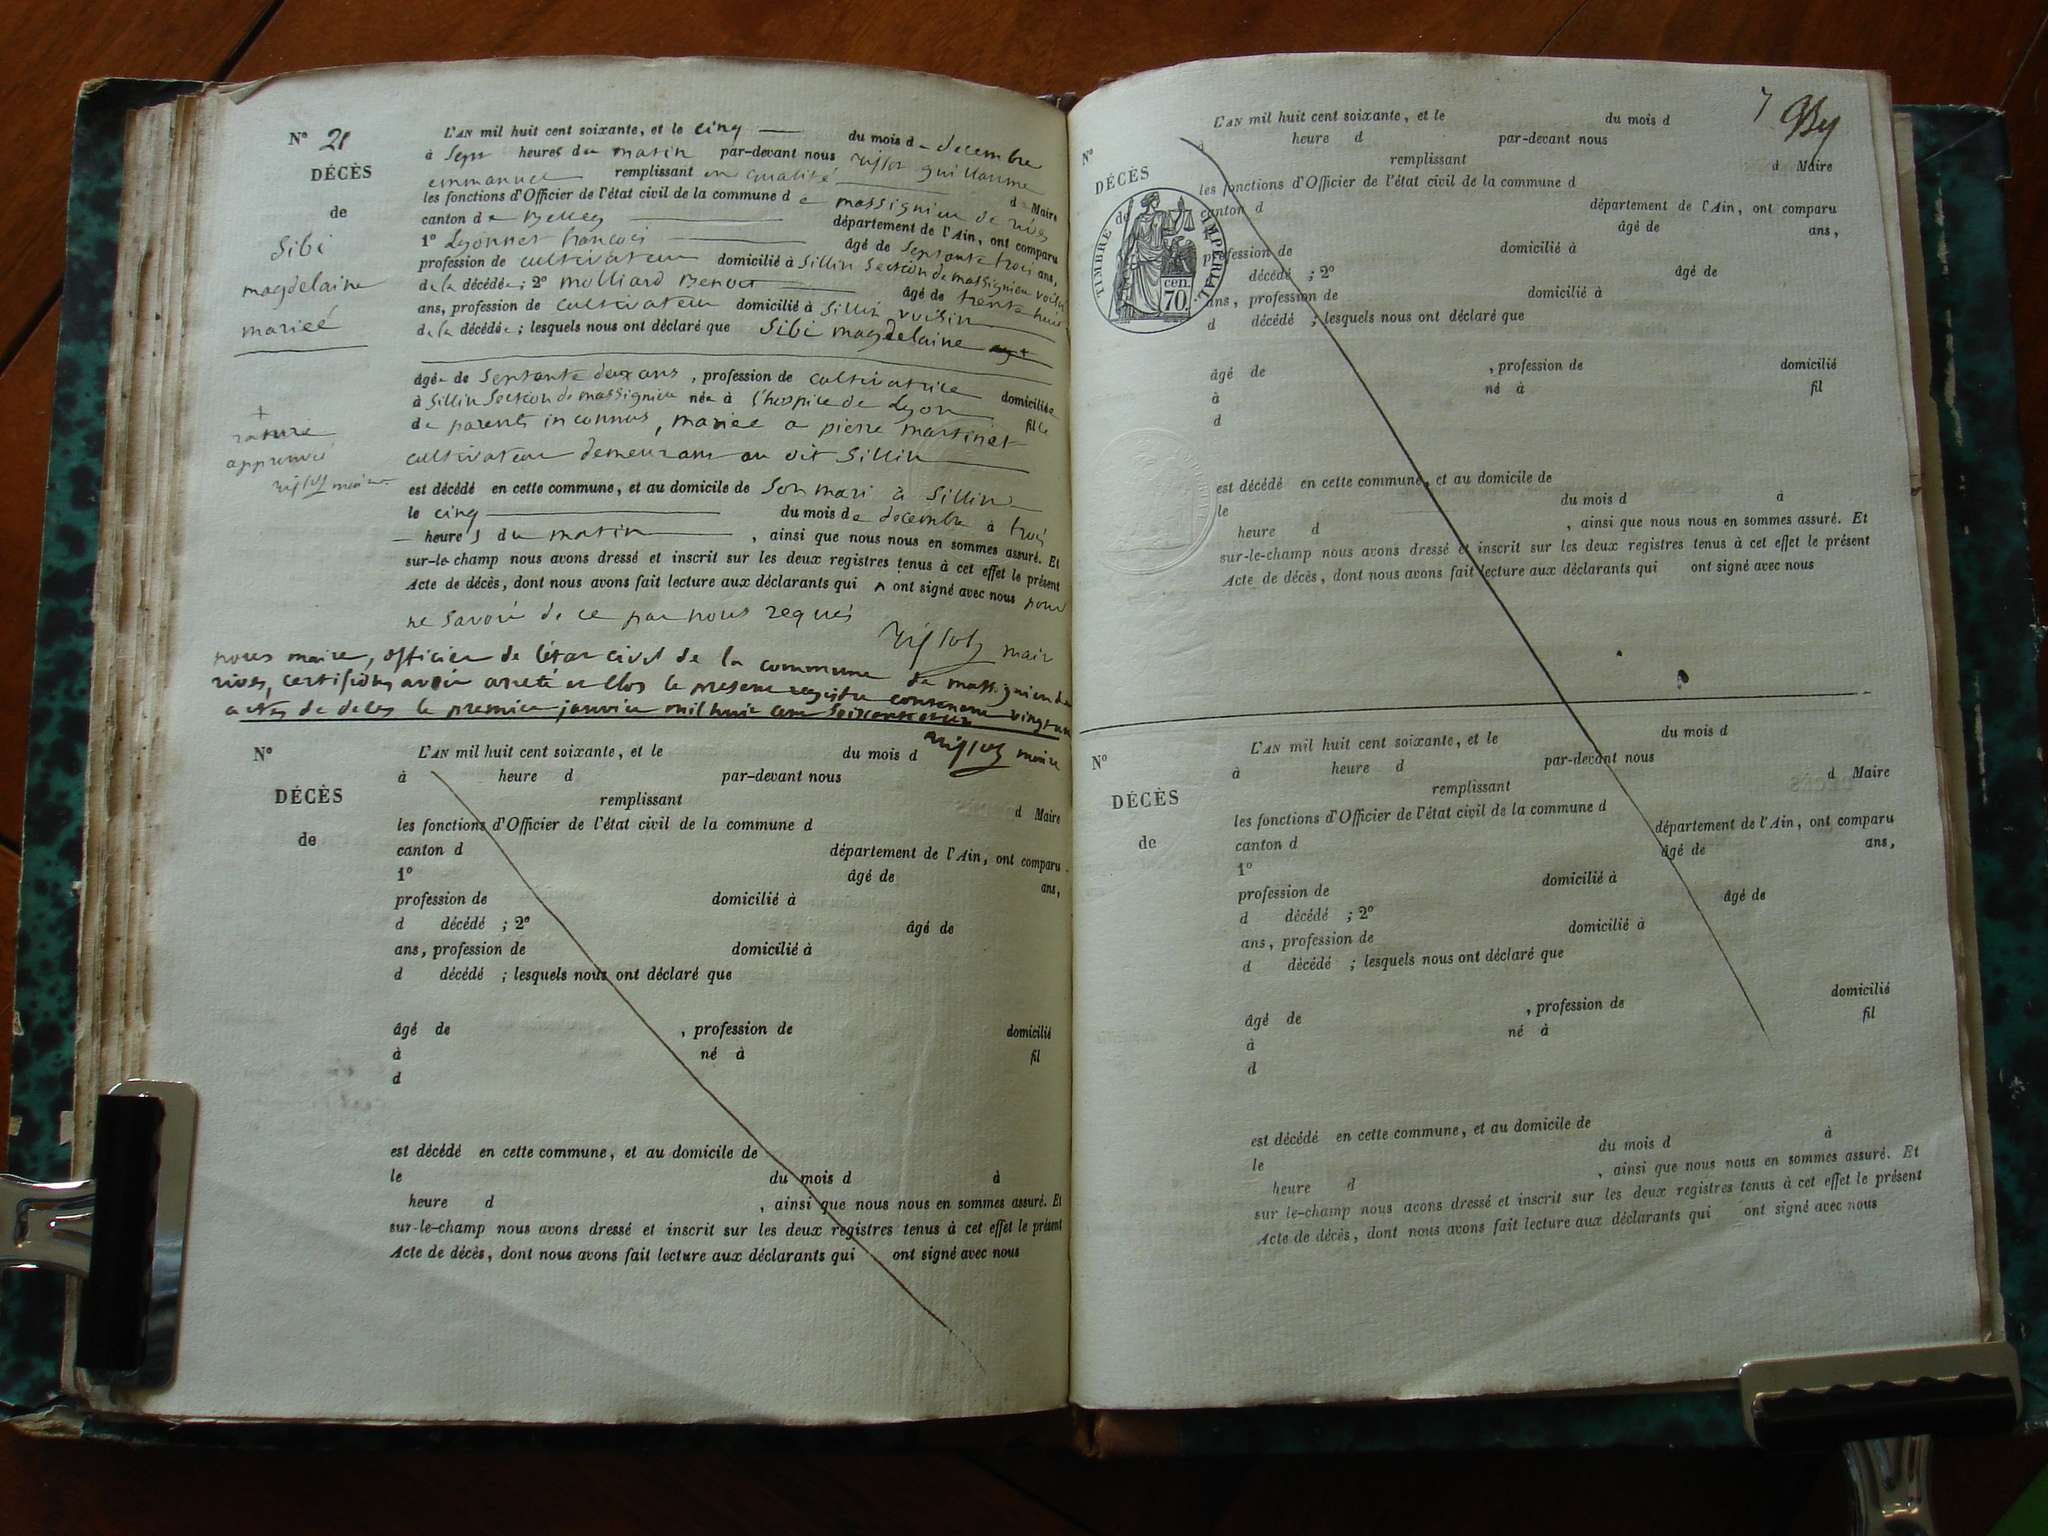 N° 21
DÉCÈS
de
Sibi
magdelaine
mariée
L'AN mil huit cent soixante, et le cinq du mois de decembre
à Sept heures du matin par-devant nous guillaume
emmanuel remplissant en qualité d Maire
les fonctions d'Officier de l'état civil de la commune de massignieu de rives
canton de Belley département de l'Ain, ont comparu
1° Lyonnet francois âgé de Septante trois ans,
profession de cultivateur domicilié à Sillin Section de massignieu voisin
de la décédée; 2° molliard Benoit âgé de trente huit
ans, profession de cultivateur domicilié à Sillin voisin
de la décédée; lesquels nous ont déclaré que Sibi magdelaine
âgée de Septante deux ans, profession de cultivatrice domiciliée
à Sillin Section de massignieu née à l'hospice de Lyon fille
de parents inconnus, mariée a pierre martinet
cultivateur demeurant au dit Sillin
+
rature
approuvée
maire
est décédé en cette commune, et au domicile de Son mari à Sillin
le cinq du mois de decembre à trois
heures du matin, ainsi que nous nous en sommes assuré. Et
sur-le-champ nous avons dressé et inscrit sur les deux registres tenus à cet effet le présent
Acte de décès, dont nous avons fait lecture aux déclarants qui n ont signé avec nous pour
ne Savoir de ce par nous requis
maire
nous maire, officier de l'état civil de la commune de massignieu de
rives, certifions avoir arrêté et clos le present registre contenant vingt un
actes de deces le premier janvier mil huit cent Soixante et un
maire
N°
DÉCÈS
de
L'AN mil huit cent soixante, et le du mois d
à heure d par-devant nous
remplissant d Maire
les fonctions d'Officier de l'état civil de la commune d
canton d département de l'Ain, ont comparu
1° âgé de ans,
profession de domicilié à
d décédé ; 2° âgé de
ans, profession de domicilié à
d décédé ; lesquels nous ont déclaré que
âgé de , profession de domicilié
à né à fil
d
est décédé en cette commune, et au domicile de
le du mois d à
heure d , ainsi que nous nous en sommes assuré. Et
sur-le-champ nous avons dressé et inscrit sur les deux registres tenus à cet effet le présent
Acte de décès, dont nous avons fait lecture aux déclarants qui ont signé avec nous
7
N°
DÉCÈS
de
TIMBRE IMPÉRIAL
70 cen.
L'AN mil huit cent soixante, et le du mois d
à heure d par-devant nous
remplissant d Maire
les fonctions d'Officier de l'état civil de la commune d
canton d département de l'Ain, ont comparu
âgé de ans,
profession de domicilié à
décédé ; 2° âgé de
ans, profession de domicilié à
d décédé ; lesquels nous ont déclaré que
âgé de , profession de domicilié
à né à fil
d
est décédé en cette commune, et au domicile de
le du mois d à
heure d , ainsi que nous nous en sommes assuré. Et
sur-le-champ nous avons dressé et inscrit sur les deux registres tenus à cet effet le présent
Acte de décès, dont nous avons fait lecture aux déclarants qui ont signé avec nous
N°
DÉCÈS
de
L'AN mil huit cent soixante, et le du mois d
à heure d par-devant nous
remplissant d Maire
les fonctions d'Officier de l'état civil de la commune d
canton d département de l'Ain, ont comparu
1° âgé de ans,
profession de domicilié à
d décédé ; 2° âgé de
ans, profession de domicilié à
d décédé ; lesquels nous ont déclaré que
âgé de , profession de domicilié
à né à fil
d
est décédé en cette commune, et au domicile de
le du mois d à
heure d , ainsi que nous nous en sommes assuré. Et
sur le-champ nous avons dressé et inscrit sur les deux registres tenus à cet effet le présent
Acte de décès, dont nous avons fait lecture aux déclarants qui ont signé avec nous